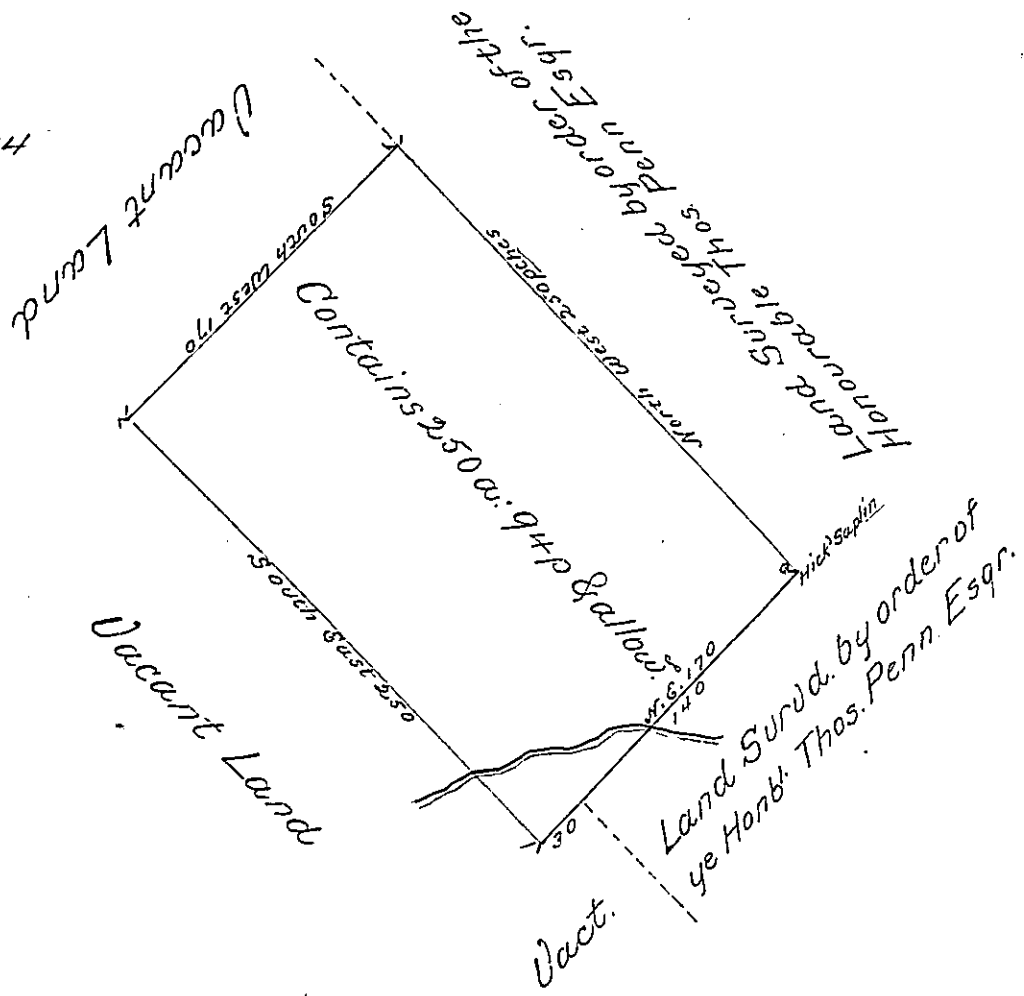 Land Surveyed by order of the
Honourable Thos. Penn Esqr.
Vacant Land
South West 170
North West 250 ptches
Contains 250 a: 94 p & allowce
South East 250
Vacant Land
Hick Saplin
N.E. 170
140
30
Land Survd. by order of
ye Honbl. Thos. Penn. Esqr.
Vact.